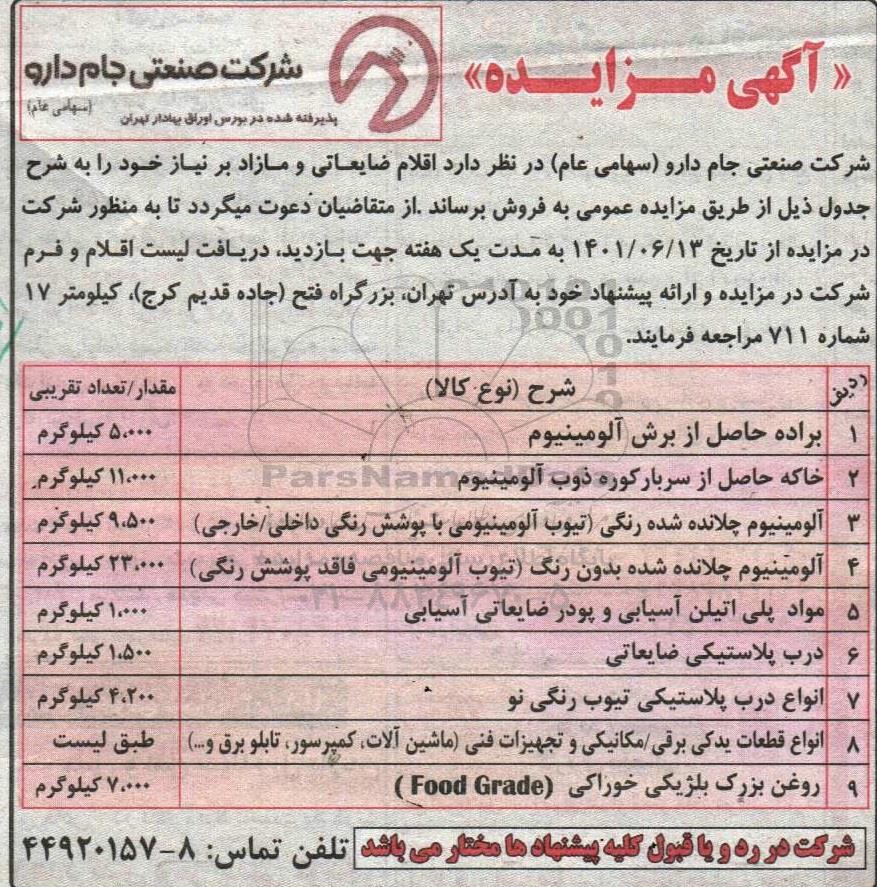 « آگهی مـزایـده»
شرکت صنعتی جام دارو
(سهامی عام)
پذیرفته شده در بورس اوراق بهادار تهران
شرکت صنعتی جام دارو (سهامی عام) در نظر دارد اقلام ضایعـاتی و مـازاد بر نیـاز خـود را به شرح
جدول ذیل از طریق مزایده عمومی به فروش برساند .از متقاضیان دعوت میگردد تا به منظور شرکت
در مزایده از تاریخ ۱۴۰۱/۰۶/۱۳ به مـدت یک هفته جهت بـازدید، دریـافت لیست اقـلام و فـرم
شرکت در مزایده و ارائه پیشنهاد خود به آدرس تهران، بزرگراه فتح (جاده قدیم کرج)، کیلومتر ۱۷
شماره ۷۱۱ مراجعه فرمایند.
ردیف شرح (نوع کالا) مقدار/تعداد تقریبی
۱ براده حاصل از برش آلومینیوم ۵،۰۰۰ کیلوگرم
۲ خاکه حاصل از سربارکوره ذوب آلومینیوم ۱۱،۰۰۰ کیلوگرم
۳ آلومینیوم چلانده شده رنگی (تیوب آلومینیومی با پوشش رنگی داخلی/خارجی) ۹،۵۰۰ کیلوگرم
۴ آلومینیوم چلانده شده بدون رنگ (تیوب آلومینیومی فاقد پوشش رنگی) ۲۳،۰۰۰ کیلوگرم
۵ مواد پلی اتیلن آسیابی و پودر ضایعاتی آسیابی ۱،۰۰۰ کیلوگرم
۶ درب پلاستیکی ضایعاتی ۱،۵۰۰ کیلوگرم
۷ انواع درب پلاستیکی تیوب رنگی نو ۴،۲۰۰ کیلوگرم
۸ انواع قطعات یدکی برقی/مکانیکی و تجهیزات فنی (ماشین آلات، کمپرسور، تابلو برق و...) طبق لیست
۹ روغن بزرک بلژیکی خوراکی (Food Grade) ۷،۰۰۰ کیلوگرم
شرکت در رد و یا قبول کلیه پیشنهاد ها مختار می باشد
تلفن تماس: ۸-۴۴۹۲۰۱۵۷